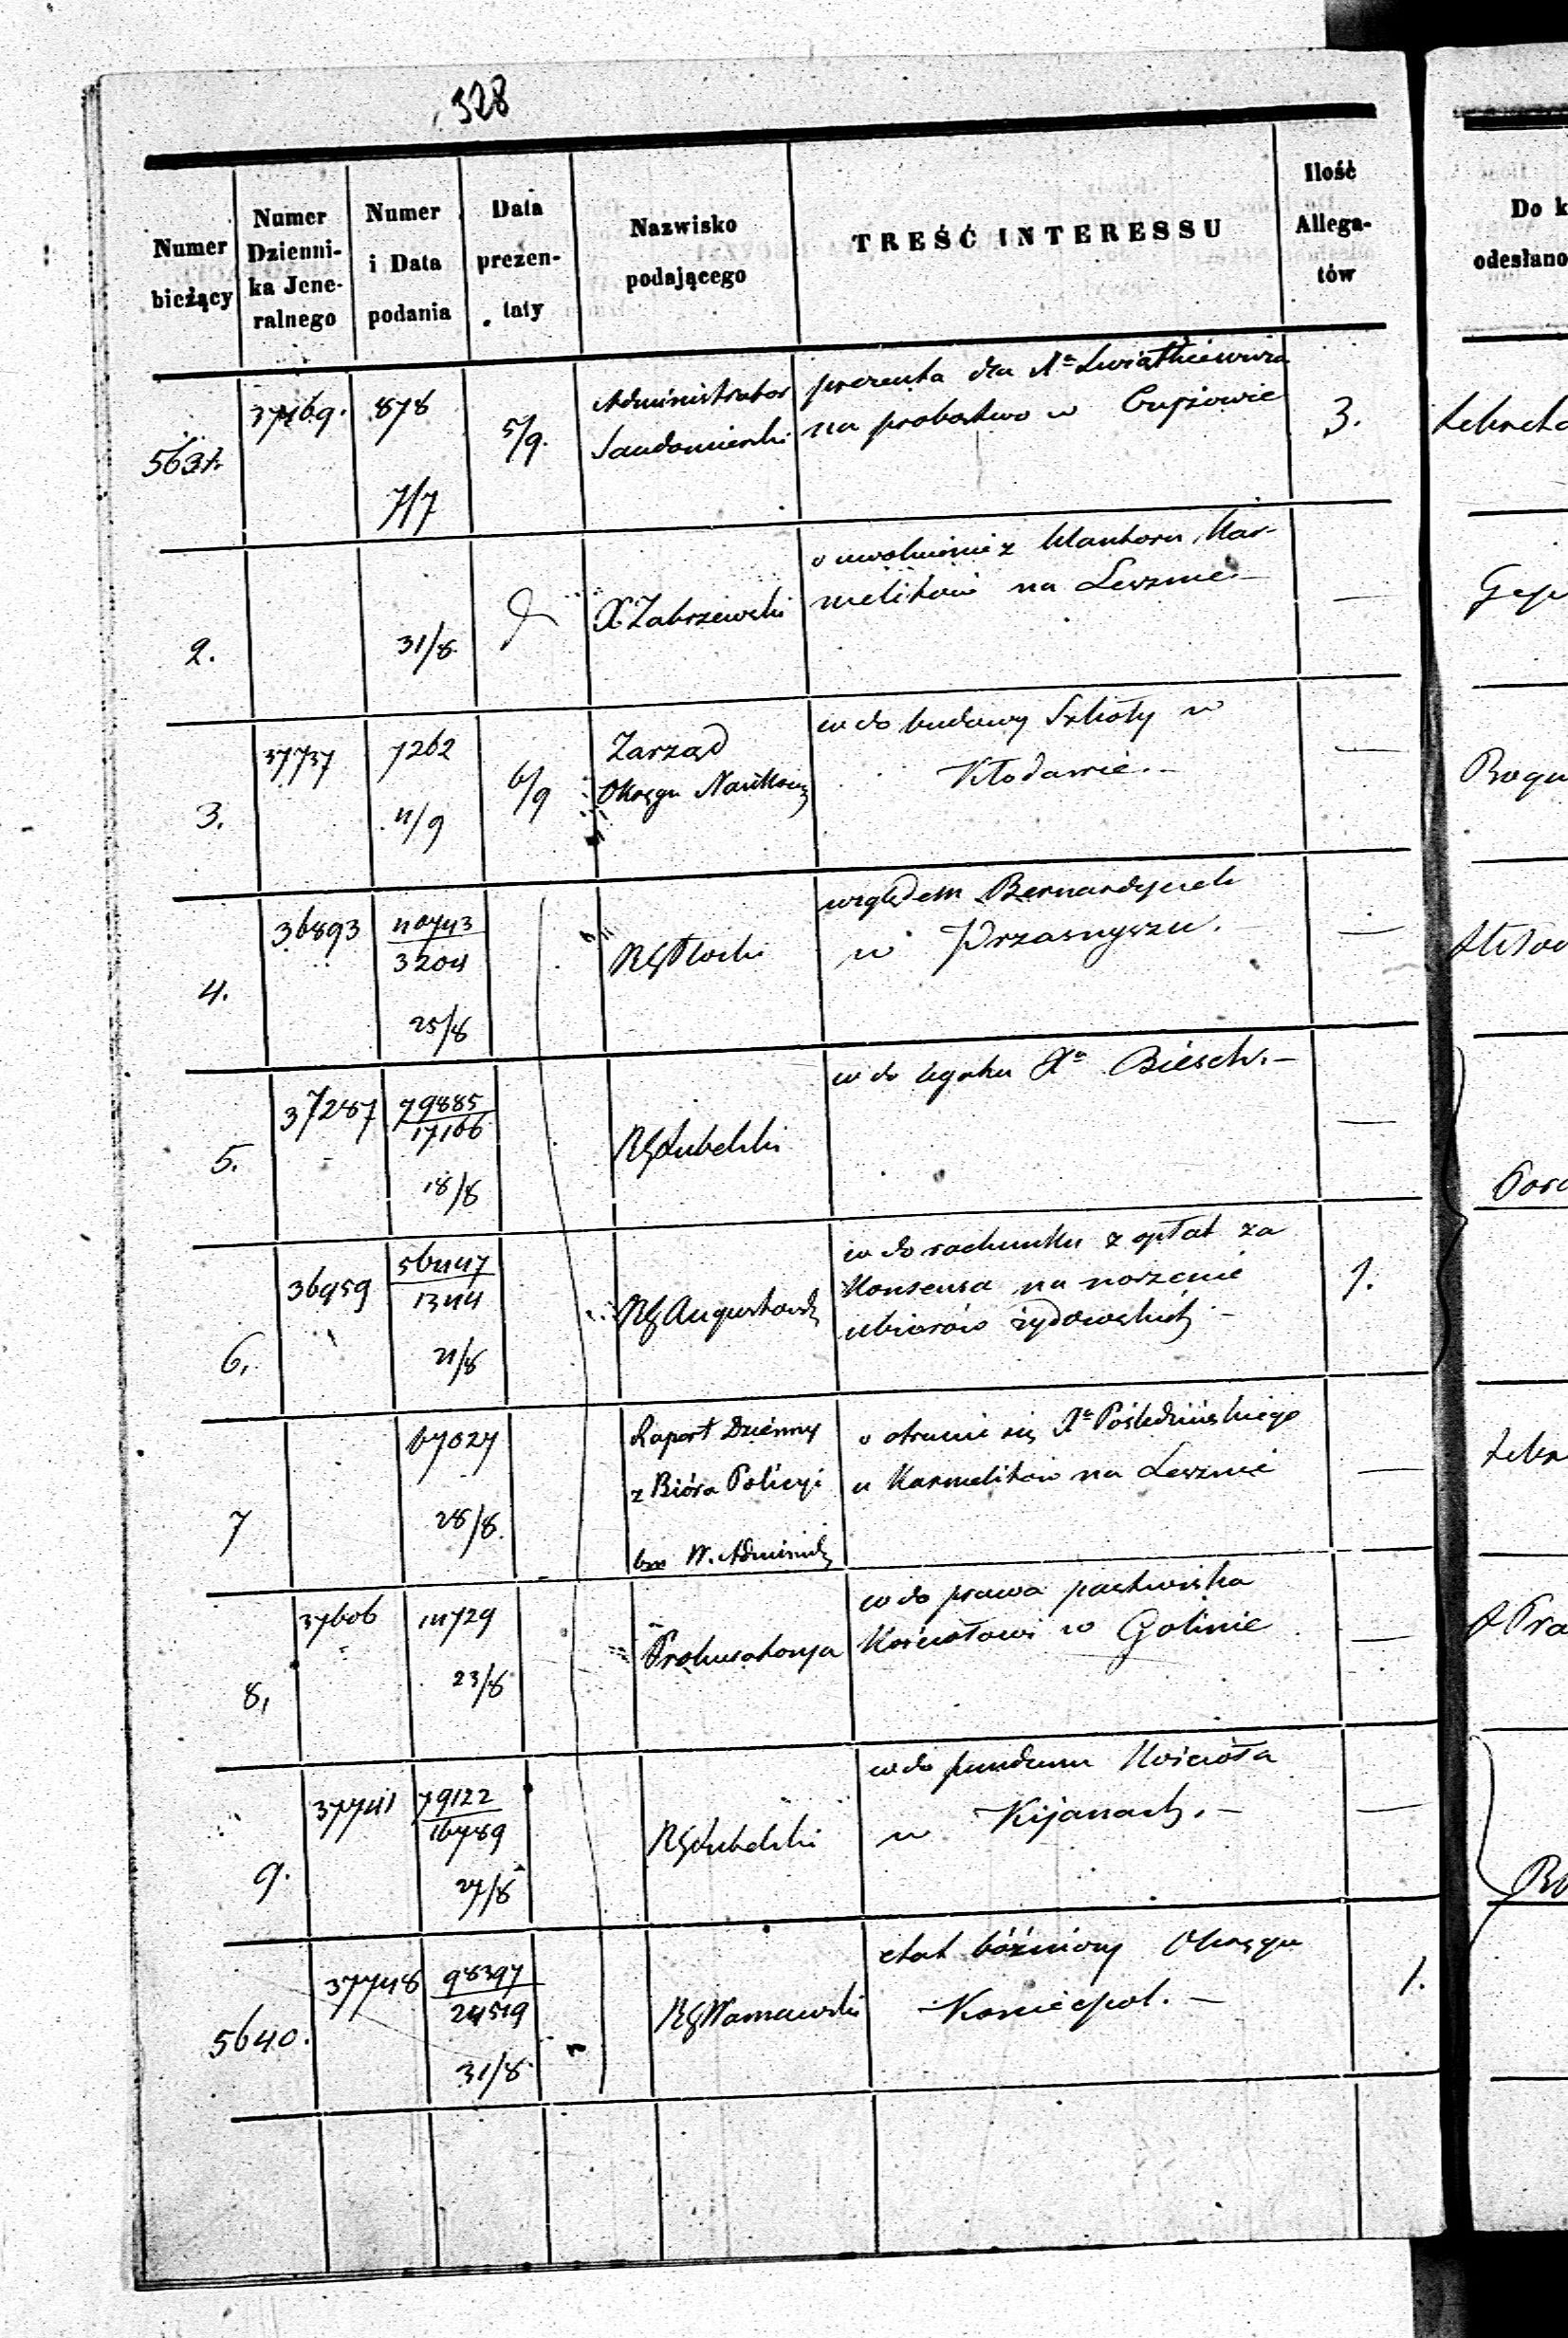 328
Numer bieżący
Numer Dzienni- ka Jene- ralnego
Numer i Data podania
Data prezen- taty
Nazwisko podającego
TREŚĆ INTERESSU
Ilość Allega- tów
Do k
odesłano
5631.
37469.
878
7/7
5/9.
Administrator
Sandomierski
prezenta dla Xa
na probostwo w
3.
2.
31/8.
X Zabrzewski
o uwolnienie z Klasztoru Kar-
melitów na Lesznie.—
—
3.
37737
7262
4/9
6/9
Zarząd
Okręgu Naukow
co do budowy Szkoły w
Kłodawie.—
—
4.
36893
40743
3204
25/8
RG Płocki
względem Bernardynek
w Przasnyszu.
—
5.
37287
79885
17166
18/8
RG Lubelski
co do legatu Xa Biesch.—
—
6.
36959
56447
1344
21/8
RG Augustowski
co do rachunku z opłat za
Konsensa na noszenie
ubiorów żydowskich —
1.
7
67027
28/8.
Raport Dzienny
z Bióra Policyi
W. Administ
o otruciu się Xa Pośledzińskiego
u Karmelitów na Lesznie
—
8,
37606
14729
23/8
Prokuratorya
co do prawa pastwiska
Kościołowi w Golinie
—
9.
37741
79122
16789
27/8
RG Lubelski
co do funduszu Kościoła
w Kijanach.—
—
5640.
37748
98397
24519
31/8
RG Warszawski
etat bóżniczy Okręgu
Koniecpol.—
1.